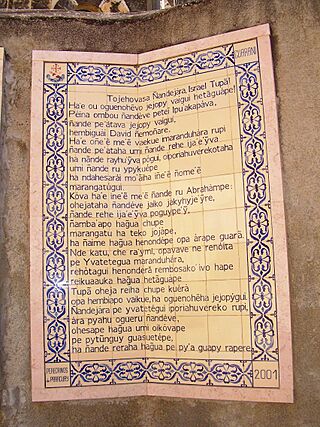 GUARANI
Tojehovasa Ñandejára, Israel Tupã!
Ha'e ou oguenohẽvo jejopy vaígui hetãguápe!
Péina ombou ñandéve peteĩ Ipu'akapáva,
ñande pe'ãtava jejopy vaígui,
hembiguái David ñemoñare.
Ha'e oñe'ẽ me'ẽ vaekue maranduhára rupi
ñande pe'ãtaha umi ñande rehe ija'e'ỹva
ha ñande rayhu'ỹva pógui, oporiahuverekotaha
umi ñande ru ypykuépe
ha ndahesarái mo'ãha iñe'ẽ ñome'ẽ
marangatúgui.
Kóva ha'e iñe'ẽ me'ẽ ñande ru Abrahámpe:
ohejataha ñandéve jako jákyhyje'ỹre,
ñande rehe ija'e'ỹva poguype'ỹ,
ñamba'apo hag̃ua chupe
marangatu ha teko jojápe,
ha ñaime hag̃ua henondépe opa árape guarã.
Nde katu, che ra'ymi, opavave ne renóita
pe Yvatetegua maranduhára,
rehótagui henonderã rembosako'ívo hape
reikuaauka hag̃ua hetãguápe
Tupã oheja reiha chupe kuéra
opa hembiapo vaikue, ha oguenohẽha jejopýgui.
Ñandejára pe yvatetégui iporiahuvereko rupi,
ára pyahu ogueru ñandéve,
ohesape hag̃ua umi oikóvape
pe pytũnguy guasuetépe,
ha ñande reraha hag̃ua pe py'a guapy rapere.
PEREGRINOS
de PARAGUAY
2001